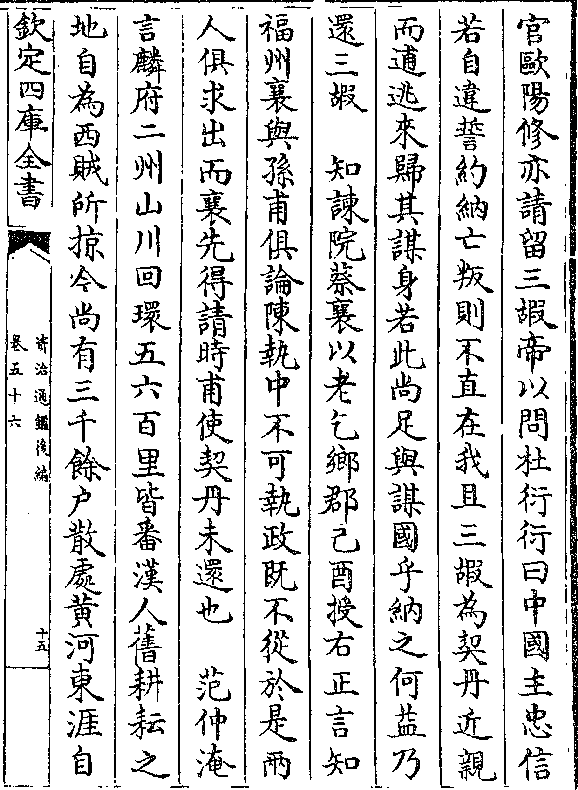 官歐陽修亦請留三嘏帝以問杜衍衍曰中國主忠信
若自違誓約納亡叛則不直在我且三嘏為契丹近親
而逋逃來歸其謀身若此尚足與謀國乎納之何益乃
還三嘏　知諫院蔡襄以老乞鄉郡己酉授右正言知
福州襄與孫甫俱論陳執中不可執政既不從於是兩
人俱求出而襄先得請時甫使契丹未還也　范仲淹
言麟府二州山川回環五六百里皆番漢人舊耕耘之
地自為西賊所掠今尚有三千餘户散處黄河東涯自
欽定四庫全書
資治通鑑後編
卷五十六
十五